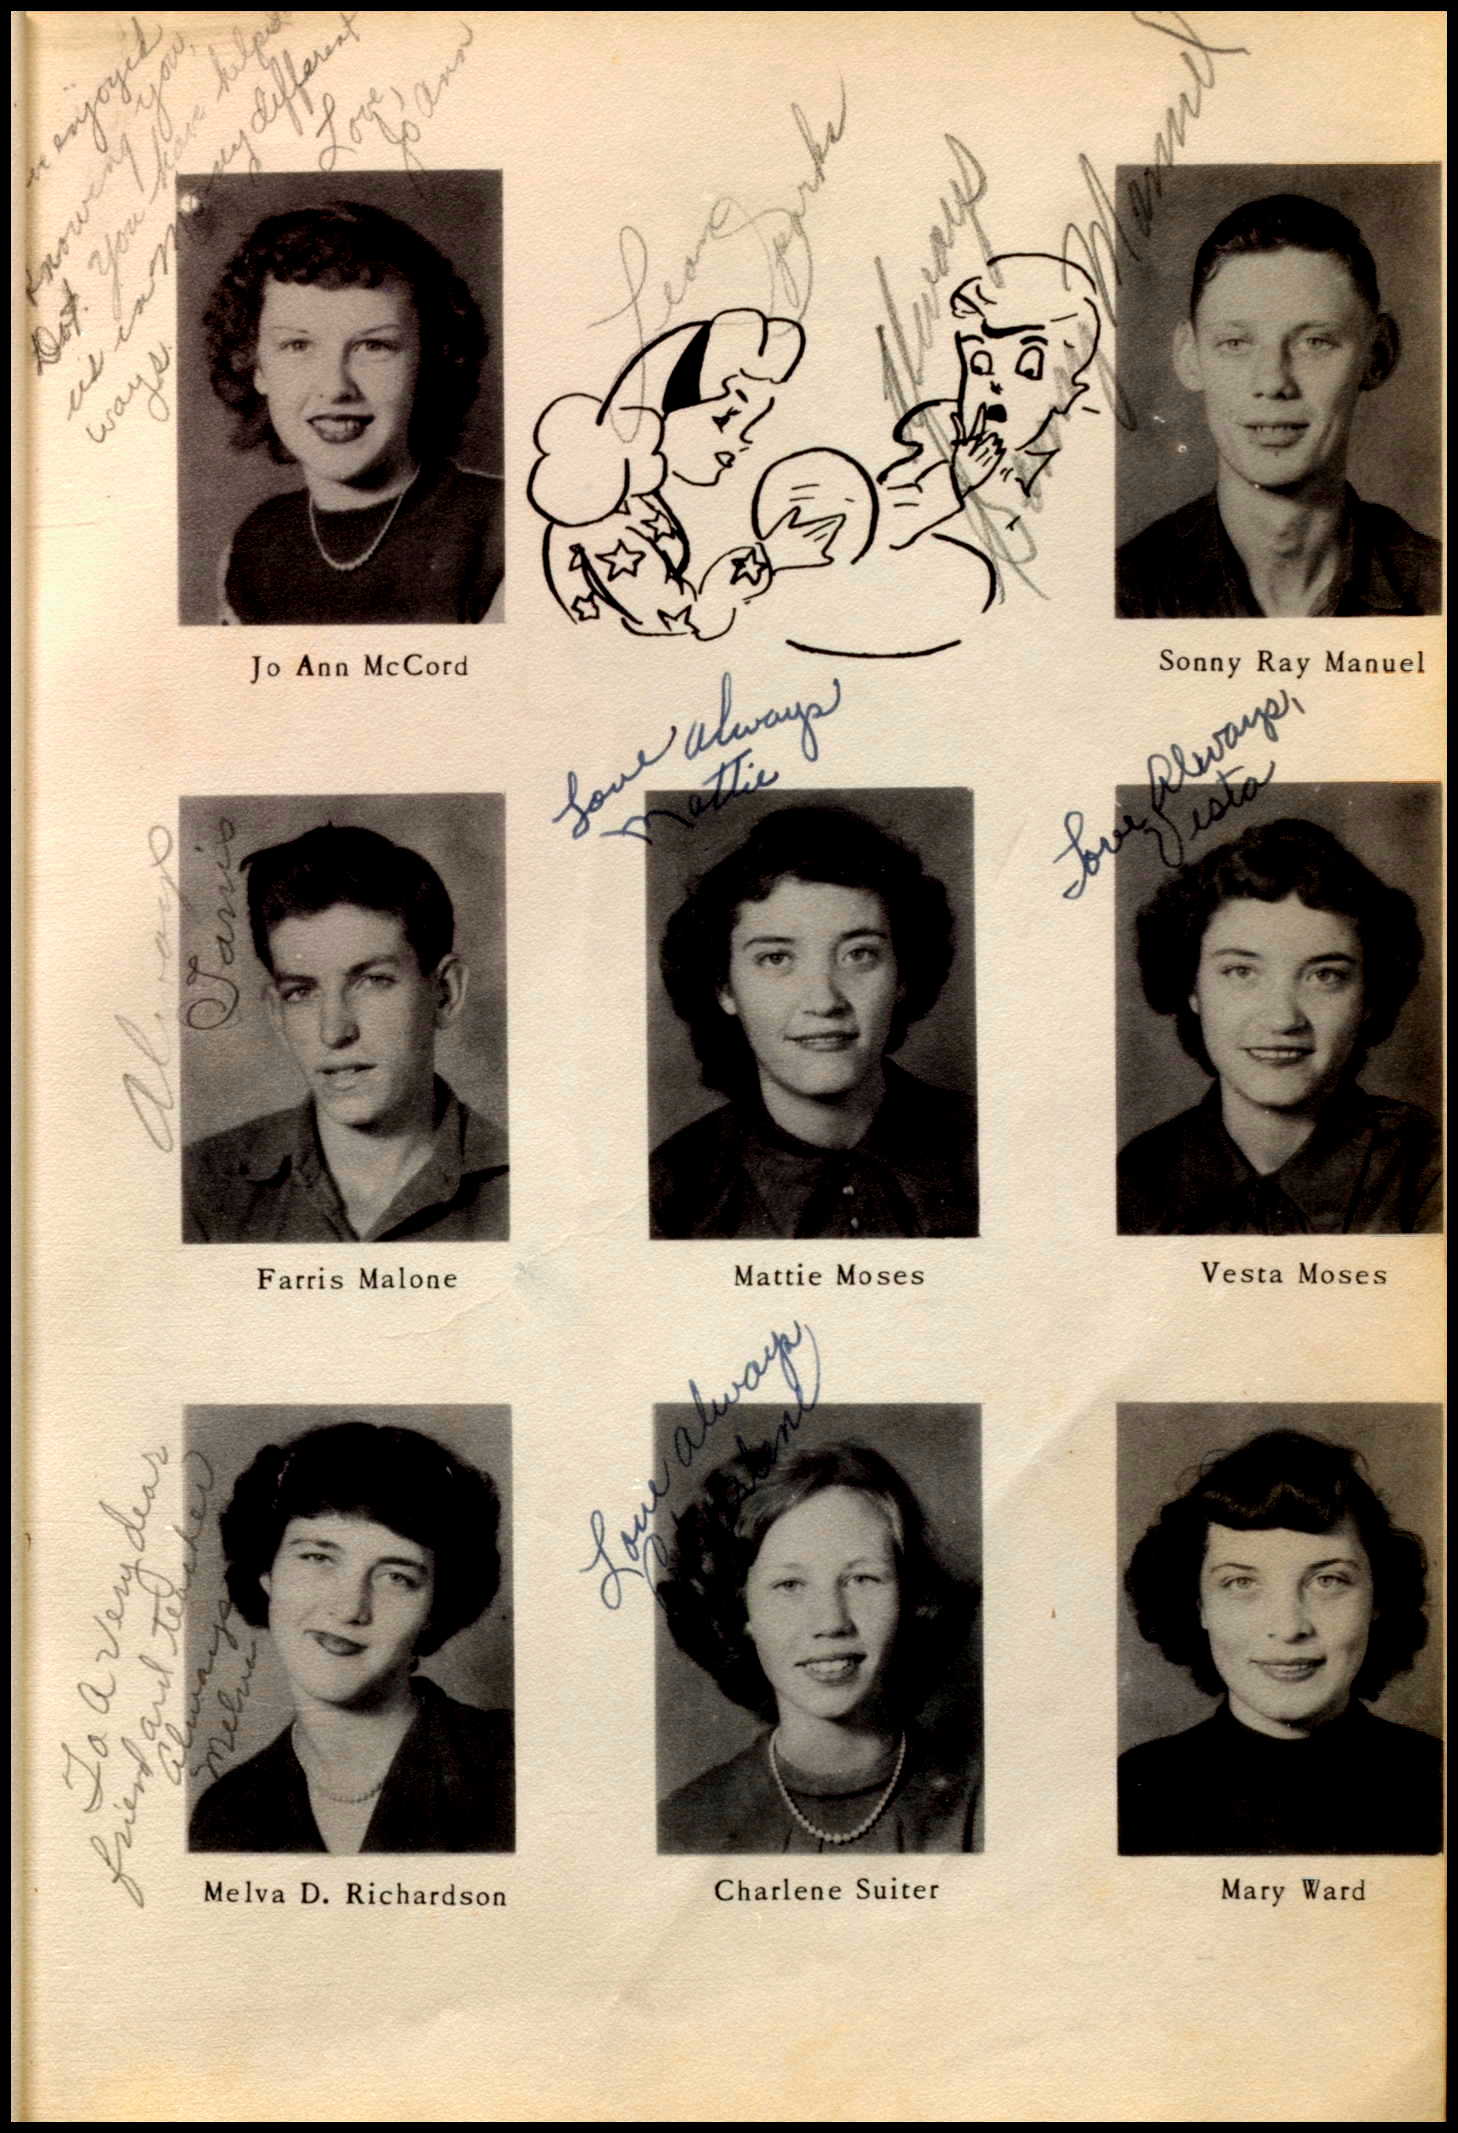 enjoyed
knowing you,
Dot. You have helped
us in many different
ways.
Love,
Jo Ann
Always
Sonny Manuel
Jo Ann McCord
Sonny Ray Manuel
Love Always
Mattie
Love Always,
Vesta
Always
Farris
Farris Malone
Mattie Moses
Vesta Moses
Love Always
Charlene
To A Very dear
friend and teacher
Always
Melva
Melva D. Richardson
Charlene Suiter
Mary Ward